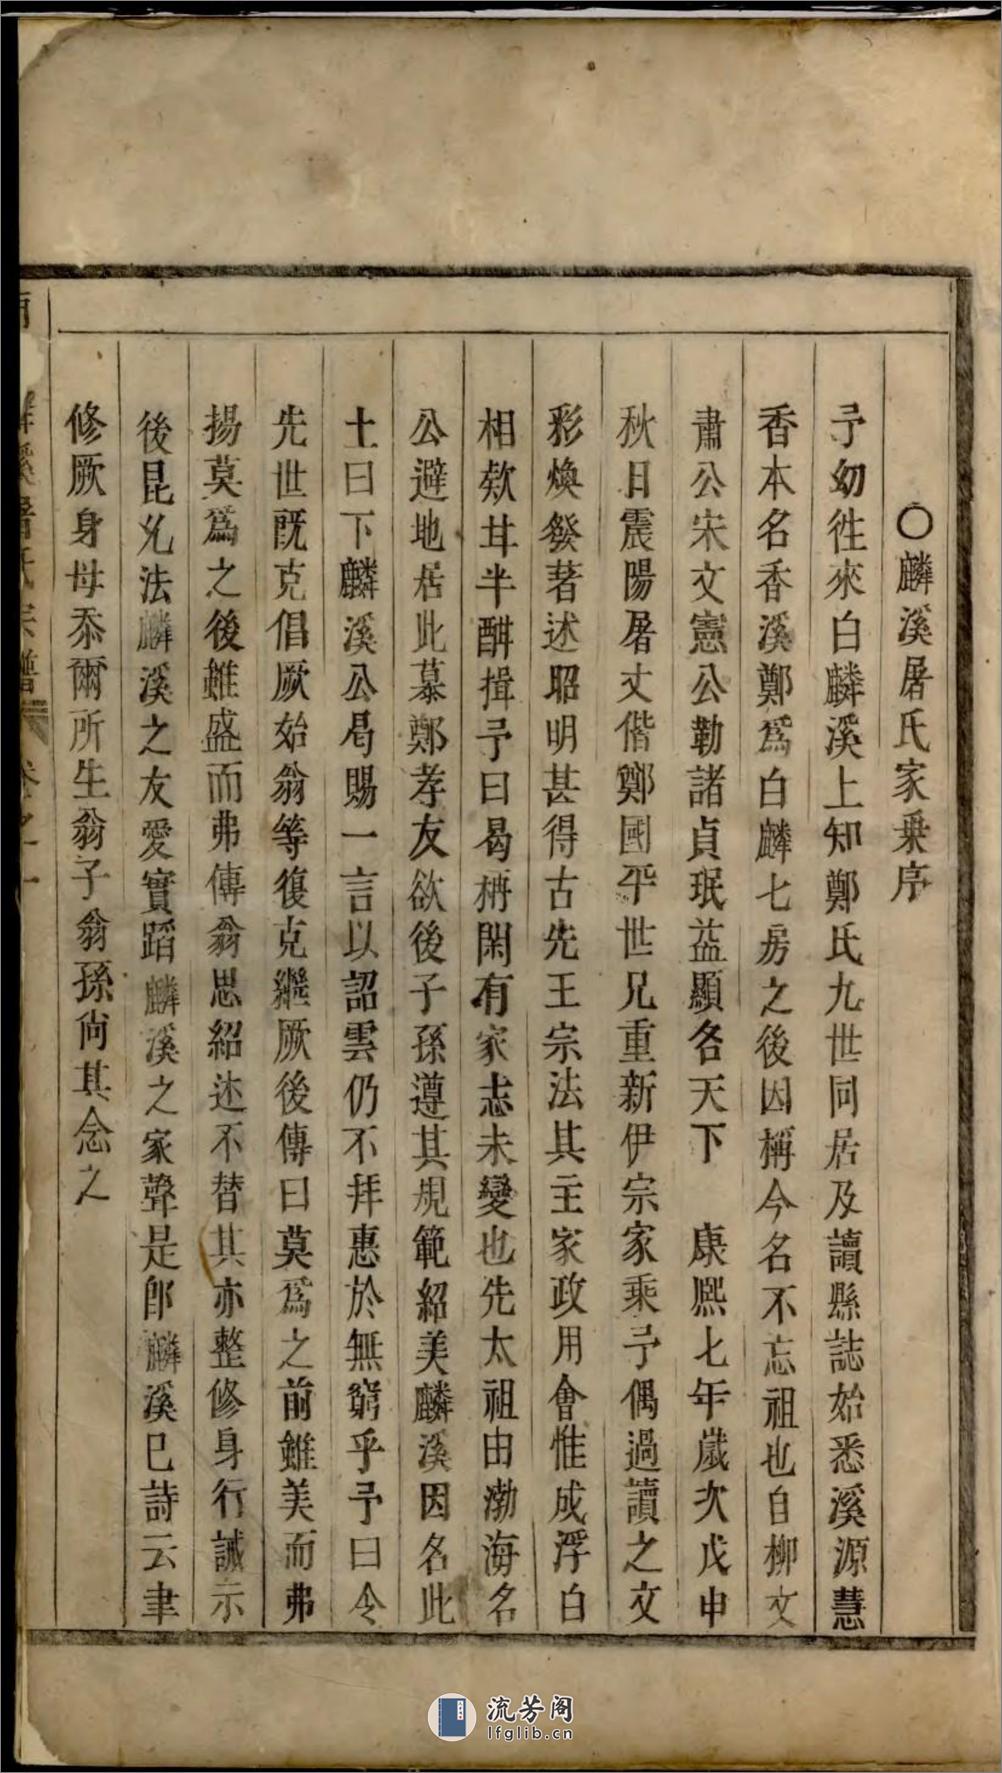 ○麟溪屠氏家乗序
予幼徃來白麟溪上知鄭氏九世同居及讀縣誌始悉溪源慧
香本名香溪鄭爲白麟七房之後因稱今名不忘祖也自柳文
肅公宋文憲公勒諸貞珉益顯各天下　康熙七年歲次戊申
秋日震陽屠丈偕鄭國平世兄重新伊宗家乘予偶過讀之文
彩煥發著述昭明甚得古先王宗法其主家政用會惟成浮白
相欸甘半酣揖予曰曷栴閑有家志未變也先太祖由渤海名
公避地居此慕鄭孝友欲後子孫遵其規範紹美麟溪因名此
土曰下麟溪公曷賜一言以詔雲仍不拜惠於無窮乎予曰令
先世既克倡厥始翁等復克繼厥後傳曰莫爲之前雖美而弗
揚莫爲之後雖盛而弗傳翁思紹述不替其亦整修身行誠示
後昆兊法麟溪之友愛實蹈麟溪之家聲是卽麟溪已詩云聿
修厥身母忝爾所生翁子翁孫尙其念之
麟溪屠氏宗譜 卷之一
流芳阁
lfglib.cn